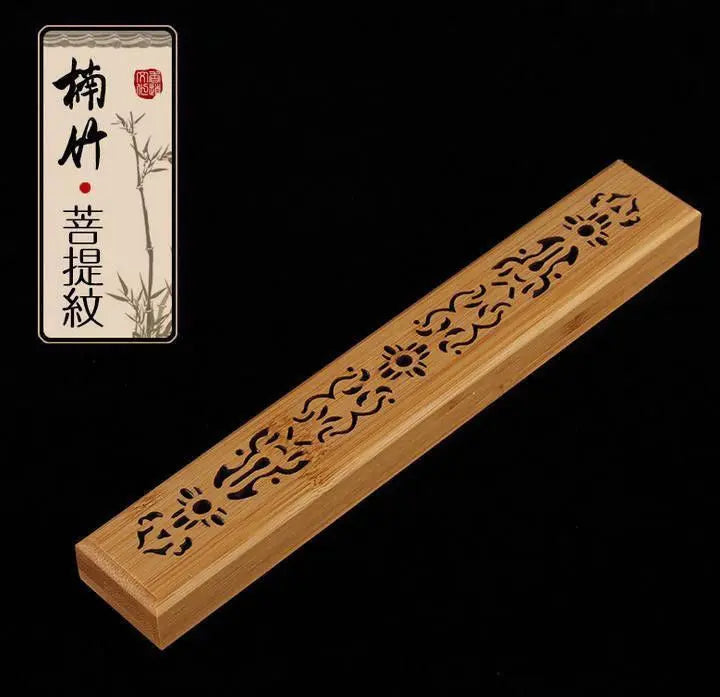 楠竹
菩提紋